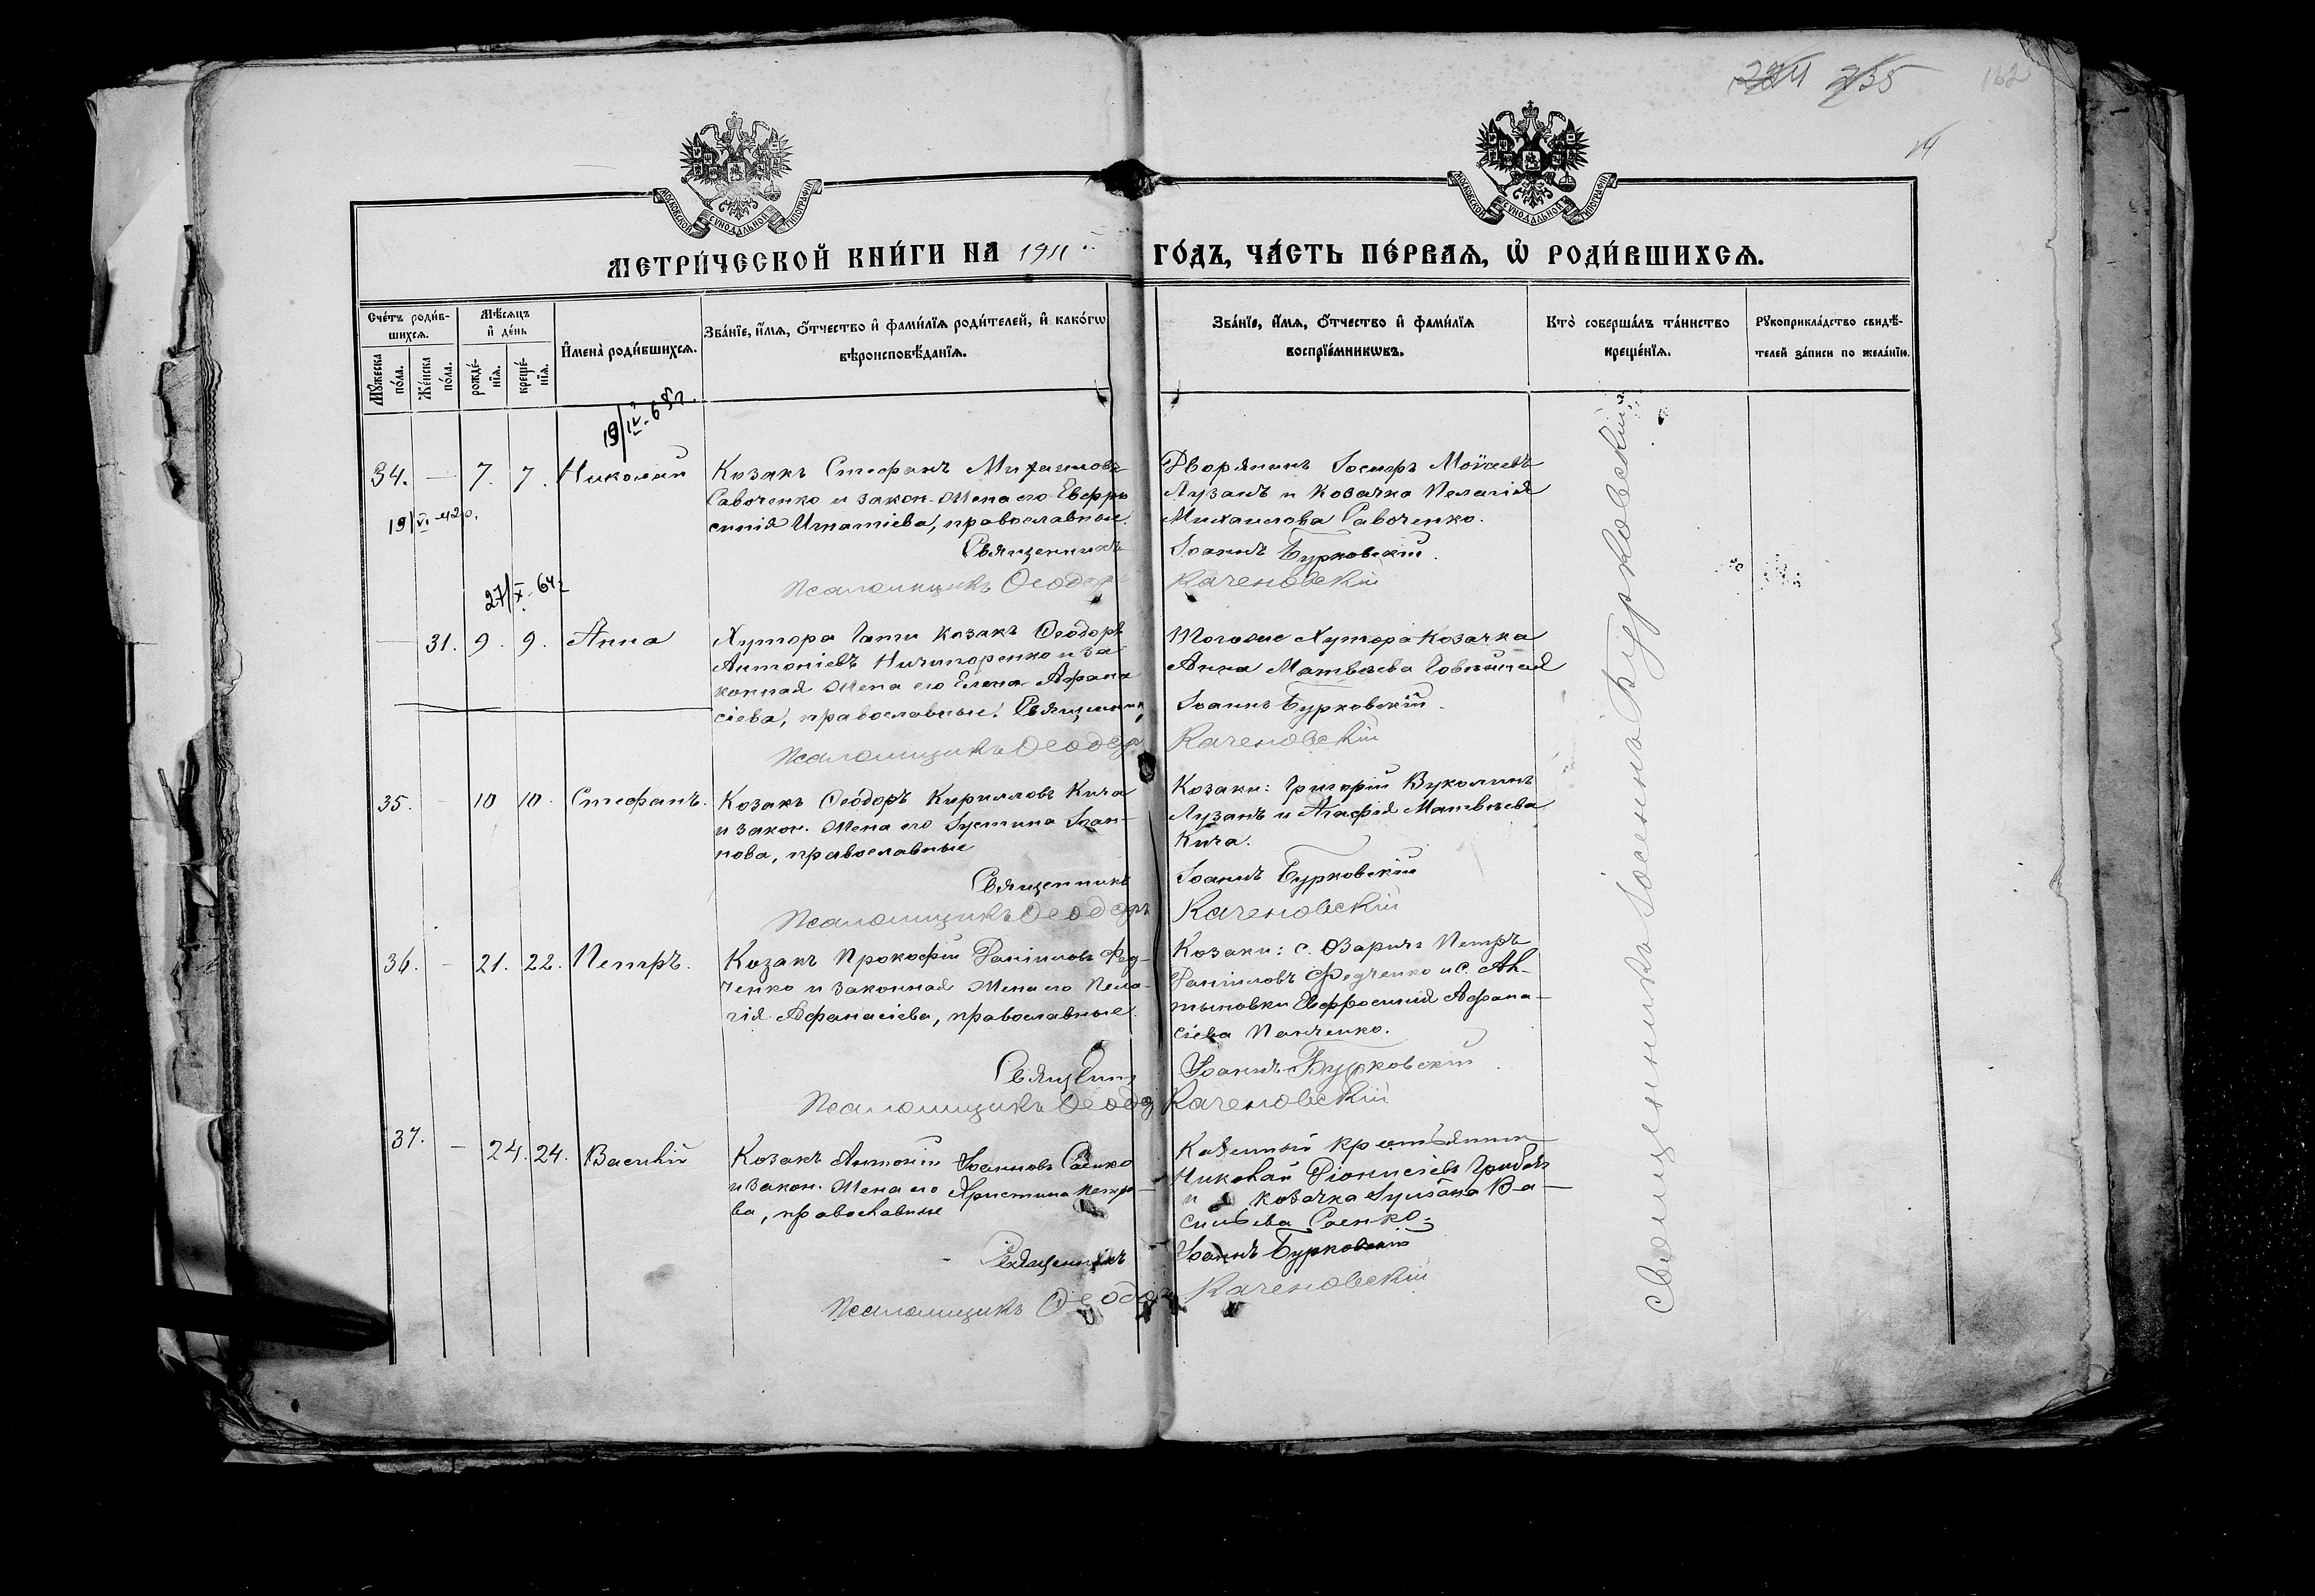 224 235
162
14
МОСКОВСКОЙ СѴНОДАЛЬНОЙ ТИПОГРАФІИ
МОСКОВСКОЙ СѴНОДАЛЬНОЙ ТИПОГРАФІИ
МЕТРИ́ЧЕСКОЙ КНИ́ГИ НА 1911 ГО́ДЪ, ЧА́СТЬ ПЕ́РВАѦ, Ѡ҆ РОДИ́ВШИХСѦ.
Сче́тъ роди́в-
шихсѧ.
Мѣ́сѧцъ
и҆ де́нь
И҆мена̀ роди́вшихсѧ.
Зва́нїе, и҆́мѧ, ѻ҆́тчество и҆ фами́лїѧ роди́телей, и҆ како́гѡ
вѣроисповѣ́данїѧ.
Зва́нїе, и҆́мѧ, ѻ҆́тчество и҆ фами́лїѧ
воспрїе́мникѡвъ.
Кто̀ соверша́лъ та́инство
креще́нїѧ.
Рꙋкоприкла́дство свидѣ́-
телей за́писи по жела́нїю.
Мꙋ́жеска по́ла.
Же́нска по́ла.
рожде́-нїѧ.
креще́-нїѧ.
19/IV-65г.
34. — 7. 7. Николай
Козакъ Стефанъ Михаиловъ
Савченко и закон. жена его Евфро
синія Игнатіева, православные.
Священникъ
Псаломщикъ Ѳеодоръ
Дворянинъ Іосифъ Моѵсеевъ
Лузанъ и козачка Пелагія
Михаилова Савченко.
Іоаннъ Бурковскій.
Каченовскій
19/VI-42г.
27/X-64г
— 31. 9. 9. Анна
Хутора Гати козакъ Ѳеодоръ
Антоніевъ Ничипоренко и за
конная жена его Елена Афана
сіева, православные. Священник
Псаломщикъ Ѳеодор
Тогоже хутора козачка
Анна Матвѣева
Іоаннъ Бурковскій.
Каченовскій
35. - 10 10. Стефанъ.
Козакъ Ѳеодоръ Кирилловъ Кича
и закон. жена его Іустина Іоан-
нова, православные
Священникъ
Псаломщикъ Ѳеодоръ
Козаки: Григорій Вуколинъ
Лузанъ и Агафія Матвѣева
Кича.
Іоаннъ Бурковскій
Каченовскій
36. - 21. 22. Петръ.
Козакъ Прокофій Даніиловъ Фед-
ченко и законная жена его Пела-
гія Афанасіева, православные.
Священ
Псаломщикъ Ѳеодо
Козаки: с. Озаричъ Петръ
Даніиловъ Федченко и с. Ал-
тыновки Евфросинія Афана-
сіева Панченко.
Іоаннъ Бурковскій.
Каченовскій
37. — 24. 24. Василій
Козакъ Антоній Іоанновъ Саенко
и закон. жена его Христина Петро-
ва, православные
Священникъ
Псаломщикъ Ѳеодор
Казенный крестьянин
Николай Діонисіевъ
и козачка Іуліана Ва-
сильева Саенко.
Іоаннъ Бурковскій
Каченовскій
Священникъ Іоаннъ Бурковскій.